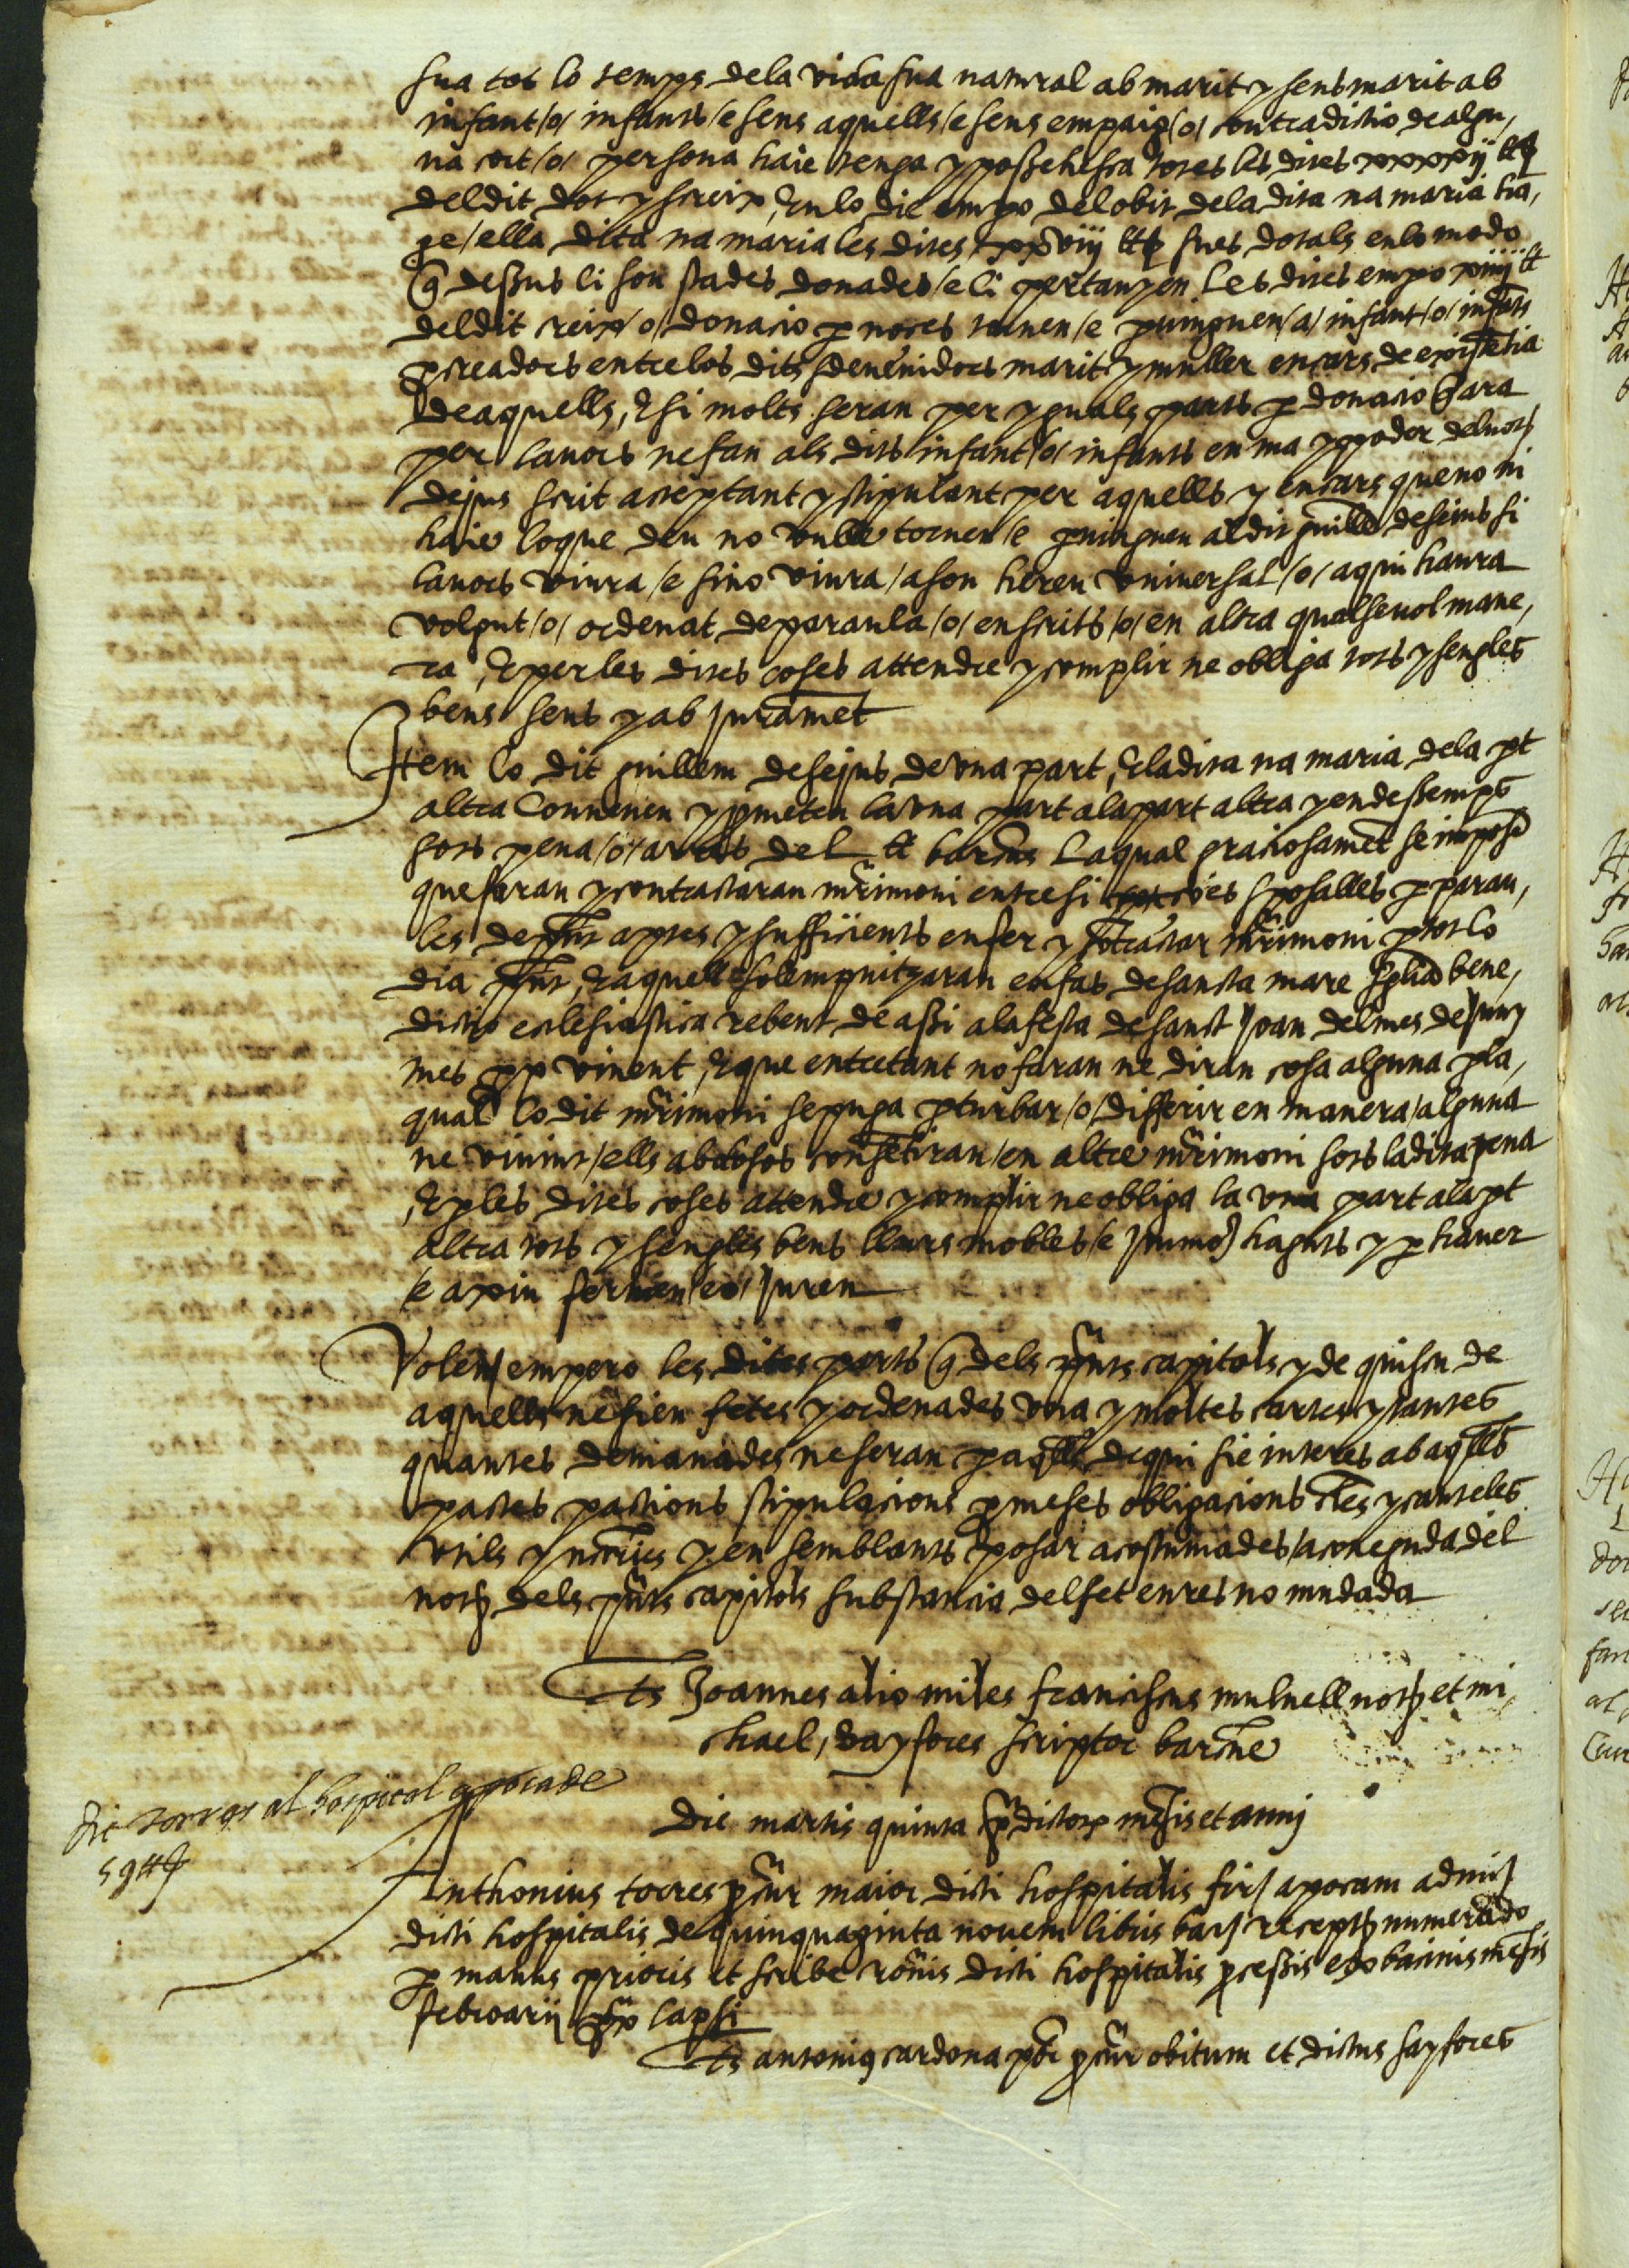 sua tot lo temps dela vida sua natural ab marit y sens marit ab
infant /o/ infants /e sens aquells /e sens empaig /o/ contradictio de algu,
na cort /o/ persona haie tenga y possehesca totes les dites xxxxij ℔
del dit dot y screix, E en lo die empo del obit dela dita na maria ha,
ge /ella dita na maria les dites xxviij ℔ sues dotals en lo modo
q̃ dessus li son stades donades /e li pertanyen Les dites empo xiiij ℔
del dit creix /o/ donacio ꝑ noces tornen /e ꝑuinguen /a/ infant /o/ infãts
ꝓcreadors entre los dits sdeuenidors marit y muller en cars de existẽtia
de aquells, E si molts seran per yguals parts ꝑ donacio q̃ ara
per lauors ne fan als dits infant /o/ infants en ma y poder del notͫ
dejus scrit acceptant y stipulant per aquells y en cars que no ni
haie loque deu no vulle tornen /e ꝑuinguen al dit guillẽ desejus si
lauors viura /e si no viura /a son hereu vniuersal /o/ aqui haura
volgut /o/ ordenat de paraula /o/ en scrits /o/ en altra qualseuol mane,
ra, E per les dites coses attendre y complir ne obliga tots y sengles
bens seus y ab juramẽt
Item lo dit guillem desejus de vna part, E la dita na maria dela pt
altra Conuenen y ꝓmeten la vna part ala part altra y endessemps
sots pena /o/ arres de L ℔ barc̃ns Laqual graciosamẽt se imposẽ
que faran y contractaran mr̃imoni entre si ço es sposalles ꝑ parau,
les de pñt aptes y sufficients en fer y cõtractar mr̃imoni ꝑ tot lo
dia pñt, E aquell solempnitzaran en fas de sancta mare sglia bene,
dictio eclesiastica rebent de assi ala festa de sanct Joan del mes de juny
mes pp vinent, E que entretant no faran ne diran cosa alguna ꝑ la,
qual lo dit mr̃imoni se puga ꝑturbar /o/ differir en manera /alguna
ne viuint /ells abdosos consẽtiran /en altre mr̃imoni sots la dita pena
, E ꝑ les dites coses attendre y complir ne obliga la vna part ala pt
altra tots y sengles bens llurs mobles /e jmmoᷤ haguts y ꝑ hauer
/e axiu fermen /e/ juren
Volent empero les dites parts q̃ dels pñts capitols y de quiscu de
aquells ne sien fetes y ordenades vna y moltes cartes y tantes
quantes demanades ne seran ꝑ aq̃lls de qui sie interes ab aq̃lls
pactes pactions stipulacions ꝓmeses obligacions cl̃es y cauteles
vtils y nc̃ries y en semblants posar acostumades /a coneguda del
notͫ dels pñts capitols substancia del fet en res no mudada
Ts̃ Joannes alio miles franciscus mulnell notͫ et mi,
chael, sayfores scriptor barc̃ne
fie torres al hospital apoca de
59 ℔
Die martis quinta p̃dictoꝝ mẽsis et annj
Anthonius torres ꝓc̃ur maior dicti hospitalis firᷤ apocam admiᷤ
dicti hospitalis de quinquaginta nouem libris barᷤ receptᷤ numerãdo
ꝑ manus prioris et scribe rõnis dicti hospitalis ꝓcessis ex bacinis mẽsis
februarij pp̃ lapsi
Ts̃ antoniꝰ cardona pbr̃ ꝓc̃ur obitum et dictus sayfores